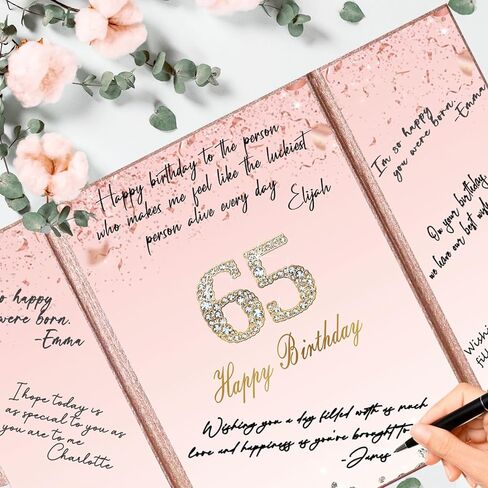 so happy
were born.
-Emma
I hope today is
as special to you as
you are to me
Charlotte
Happy birthday to the person
who makes me feel like the luckiest
person alive every day
Elijah
65
Happy Birthday
Wishing you a day filled with as much
love and happiness as you've brought to
-James
I'm so happy
you were born.
-Emma
On your birthday,
we have our best wish